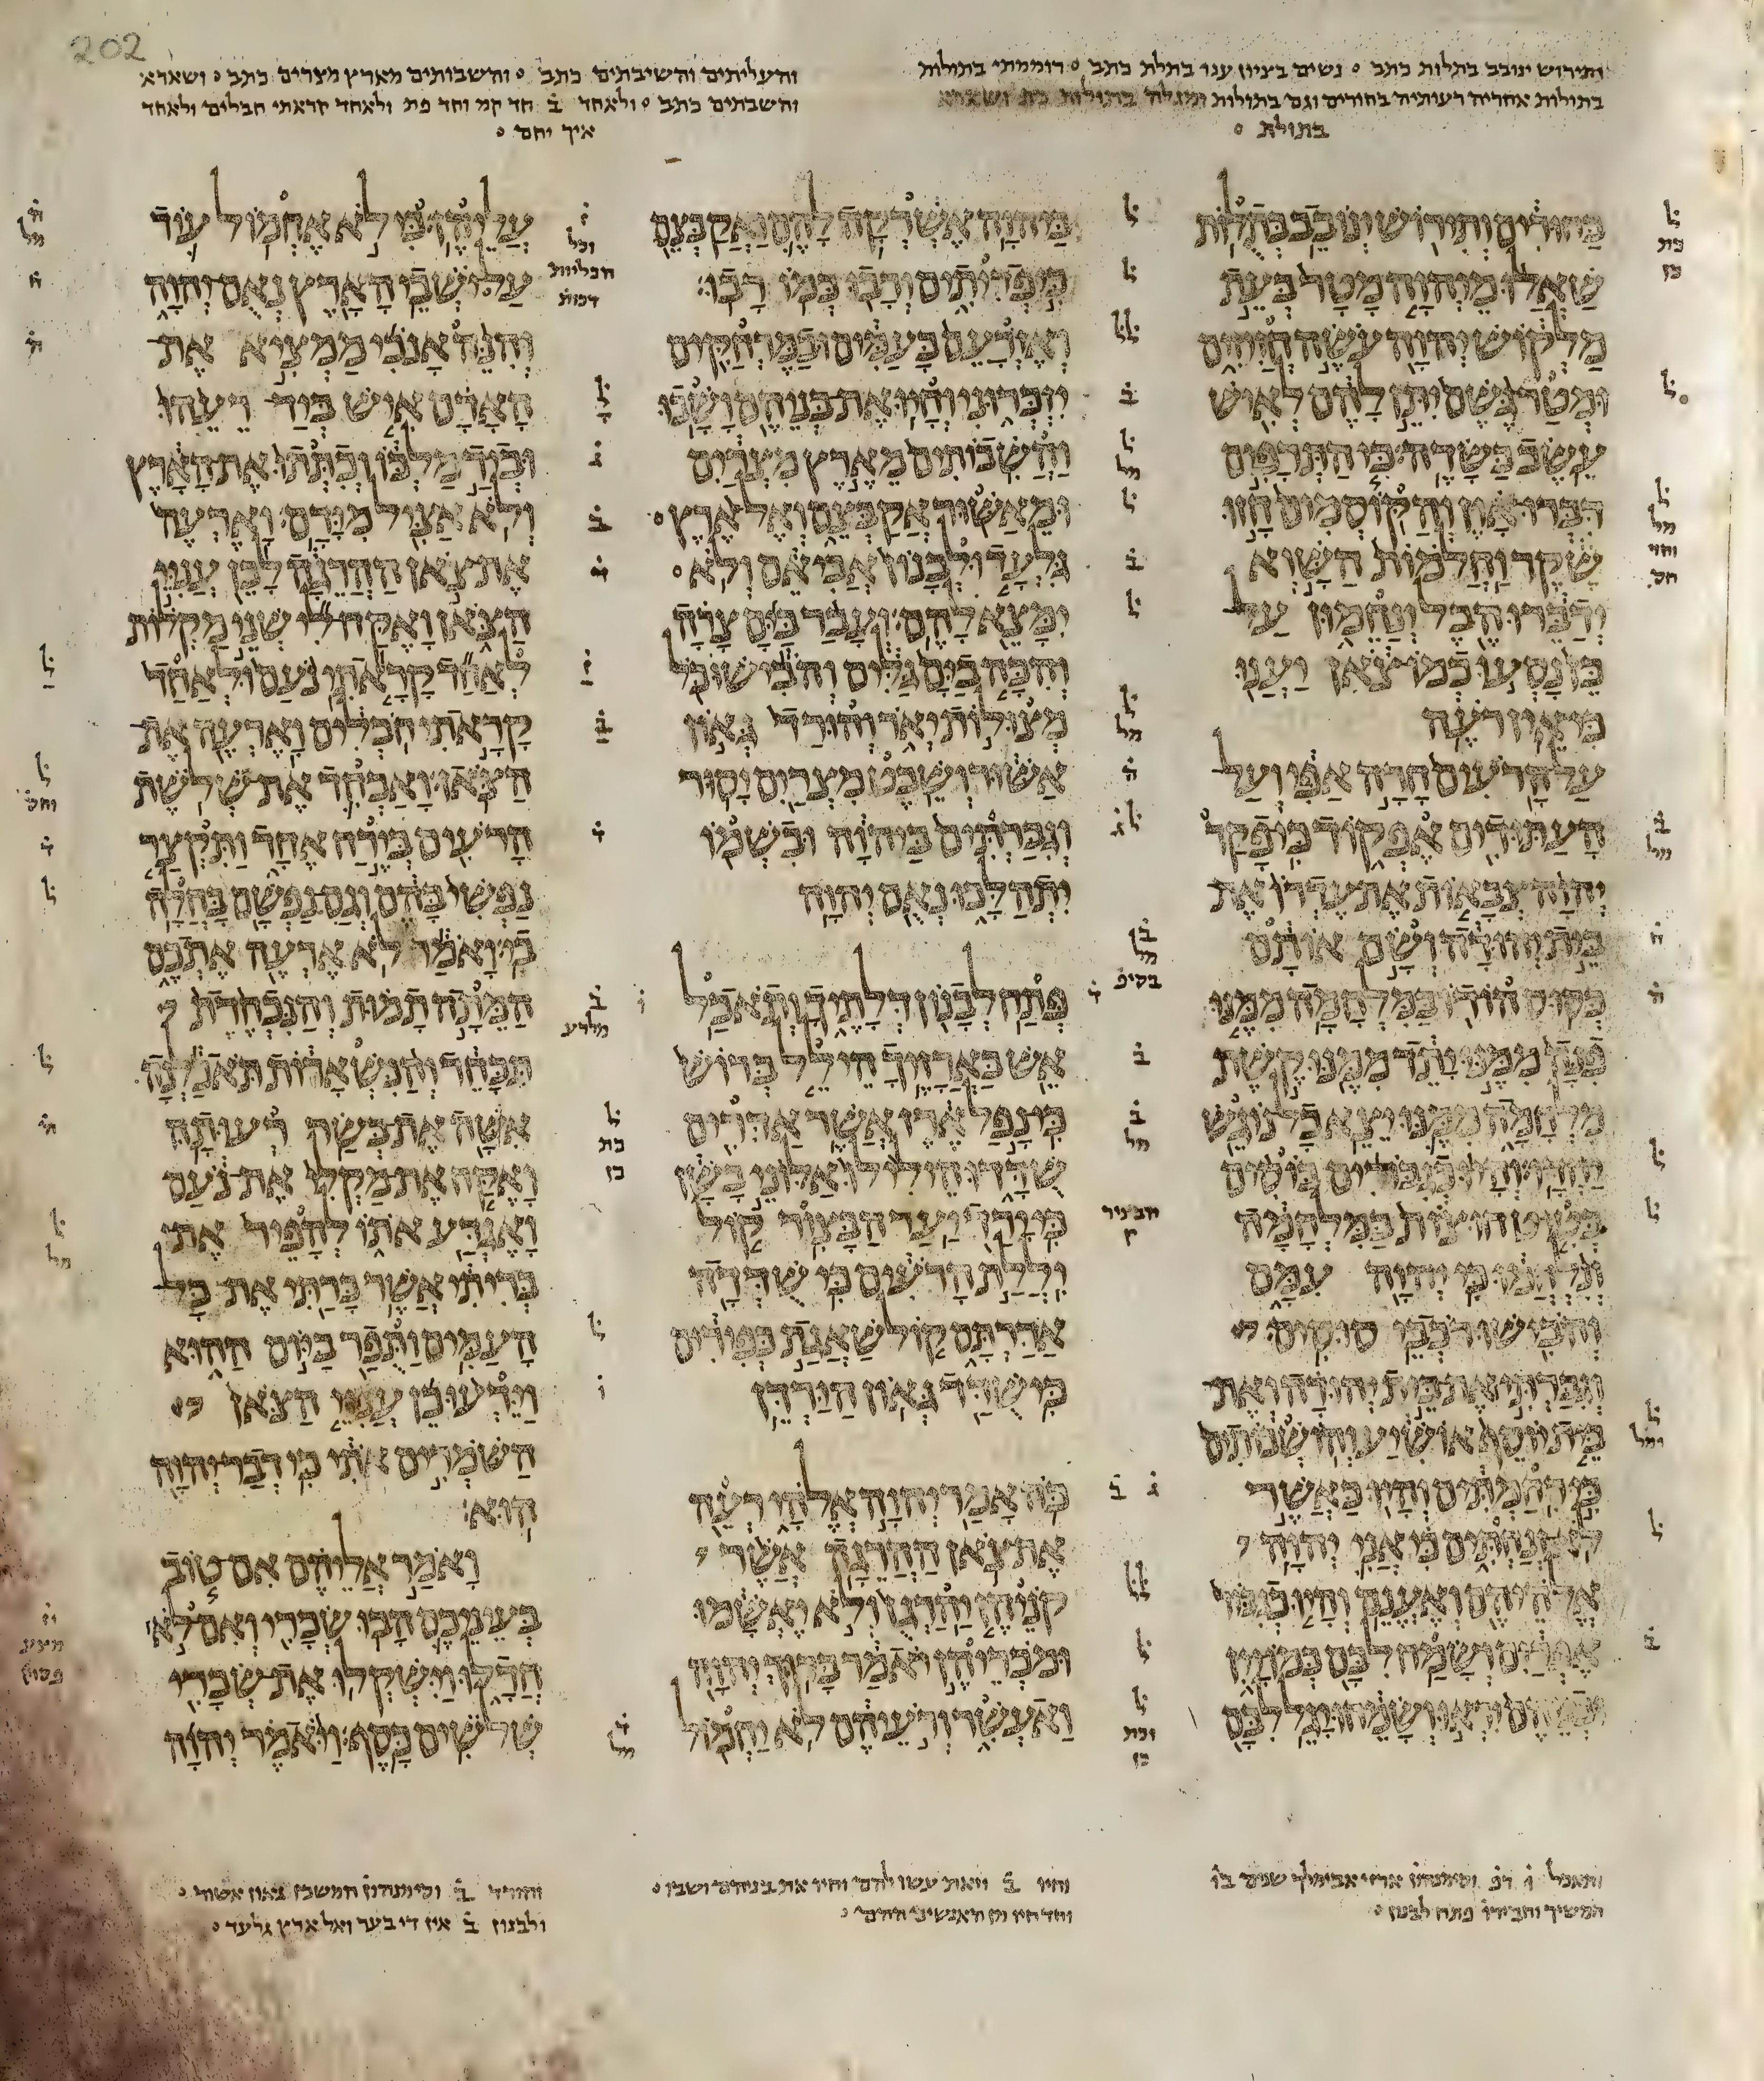 202
ותירוש ינובב בתלות כתב ○ נשים בציון ענו בתלת כתב ○ רוממתי בתולות
בתולות אחריה רעותיה בחורים וגם בתולות
בתולת ○
והעליתים והשיבתים כתב ○ והשבותים מארץ מצרים כתב ○ ושארא
והשבתים כתב ○ ולאחד ב חד קמ וחד פת ולאחד קראתי חבלים ולאחד
איך יחם ○
בחורים ותירוש ינובב בתלות
שאלו מיהוה מטר בעת
מלקוש יהוה עשה חזיזים
ומטר גשם יתן להם לאיש
עשב בשדה כי התרפים
דברו און והקוסמים חזו
שקר וחלמות השוא
ידברו הבל ינחמון על
כן נסעו כמו צאן יענו
כי אין רעה
על הרעים חרה אפי ועל
העתודים אפקוד כי פקד
יהוה צבאות את עדרו את
בית יהודה ושם אותם
כסוס הודו במלחמה ממנו
פנה ממנו יתד ממנו קשת
מלחמה ממנו יצא כל נוגש
יחדו והיו כגברים בוסים
בטיט חוצות במלחמה
ונלחמו כי יהוה עמם
והבישו רכבי סוסים
וגברתי את בית יהודה ואת
בית יוסף אושיע והושבותים
כי רחמתים והיו כאשר
לא זנחתים כי אני יהוה
אלהיהם ואענם והיו כגבור
אפרים ושמח לבם כמו יין
ובניהם יראו ושמחו יגל לבם
ביהוה אשרקה להם ואקבצם
כי פדיתים ורבו כמו רבו
ואזרעם בעמים ובמרחקים
יזכרוני וחיו את בניהם ושבו
והשבותים מארץ מצרים
ומאשור אקבצם ואל ארץ
גלעד ולבנון אביאם ולא
ימצא להם ועבר בים צרה
והכה בים גלים והבישו כל
מצולות יאר והורד גאון
אשור ושבט מצרים יסור
וגברתים ביהוה ובשמו
יתהלכו נאם יהוה
פתח לבנון דלתיך ותאכל
אש בארזיך הילל ברוש
כי נפל ארז אשר אדרים
שדדו הילילו אלוני בשן
כי ירד יער הבצור קול
יללת הרעים כי שדדה
אדרתם קול שאגת כפירים
כי שדד גאון הירדן
כה אמר יהוה אלהי רעה
את צאן ההרגה אשר
קניהן יהרגן ולא יאשמו
ומכריהן יאמר ברוך יהוה
ואעשר ורעיהם לא יחמול
עליהן כי לא אחמול עוד
על ישבי הארץ נאם יהוה
והנה אנכי ממציא את
האדם איש ביד רעהו
וביד מלכו וכתתו את הארץ
ולא אציל מידם וארעה
את צאן ההרגה לכן עניי
הצאן ואקח לי שני מקלות
לאחד קראתי נעם ולאחד
קראתי חבלים וארעה את
הצאן ואכחד את שלשת
הרעים בירח אחד ותקצר
נפשי בהם וגם נפשם בחלה
בי ואמר לא ארעה אתכם
המתה תמות והנכחדת
תכחד והנשארות תאכלנה
אשה את בשר רעותה
ואקח את מקלי את נעם
ואגדע אתו להפיר את
בריתי אשר כרתי את כל
העמים ותפר ביום ההוא
וידעו כן עניי הצאן
השמרים אתי כי דבר יהוה
הוא
ואמר אליהם אם טוב
בעיניכם הבו שכרי ואם לא
חדלו וישקלו את שכרי
שלשים כסף ויאמר יהוה
ותאכל
המשיך והכידו פתח לבנון ○
וחיו ב וזאת עשו להם וחיו את בניהם ושבו ○
והורד ב
ולבנון ב אין די בער ואל ארץ גלעד ○